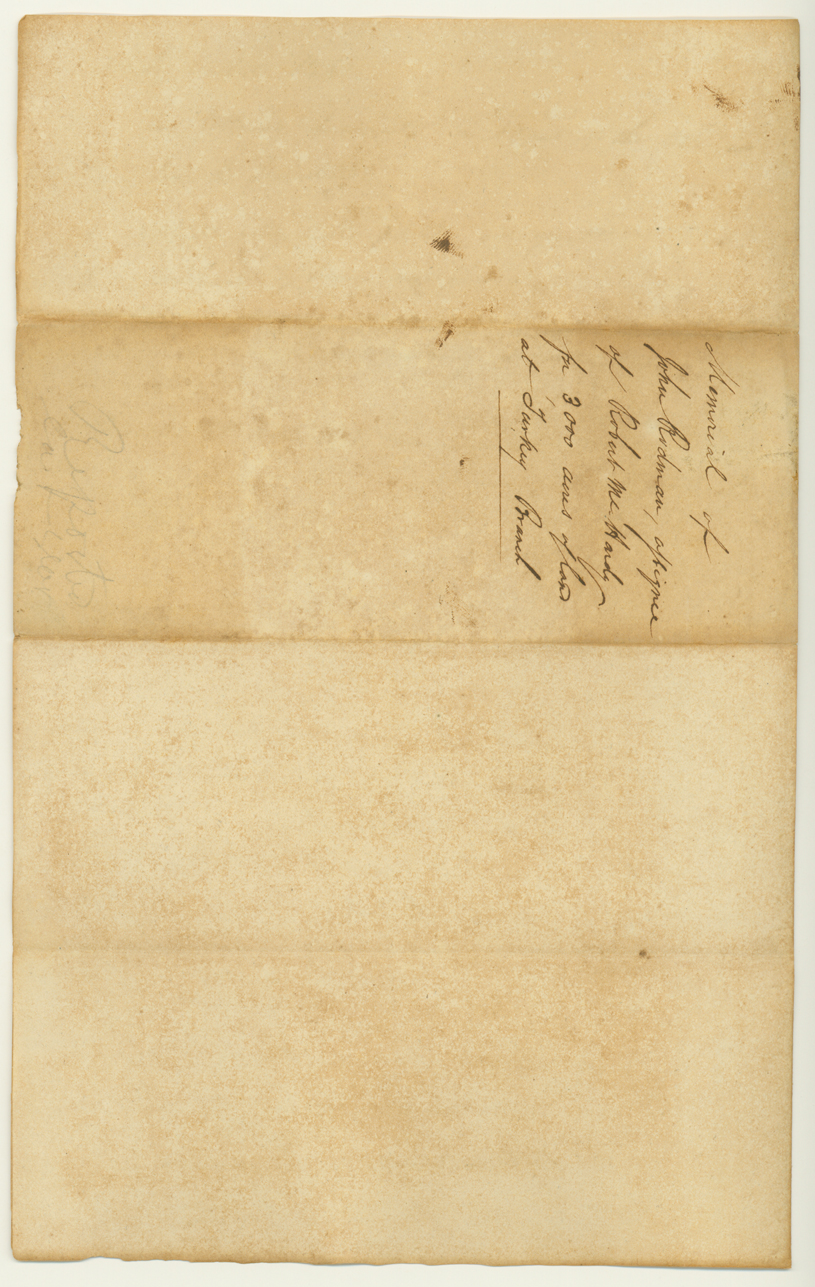 Memorial of
John Rodman, assignee
of Robert Mc Hardy
for 3000 acres of land
at Turkey Branch